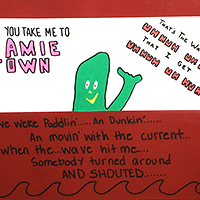 YOU TAKE ME TO
AMIE
OWN
That's The Wa
UH HUH UH
THAT I GET
UH HUH UH HUH
ve were Paddlin'.....An Dunkin'.....
An movin' with the current...
when the...wave hit me....
Somebody turned around
AND SHOUTED.......